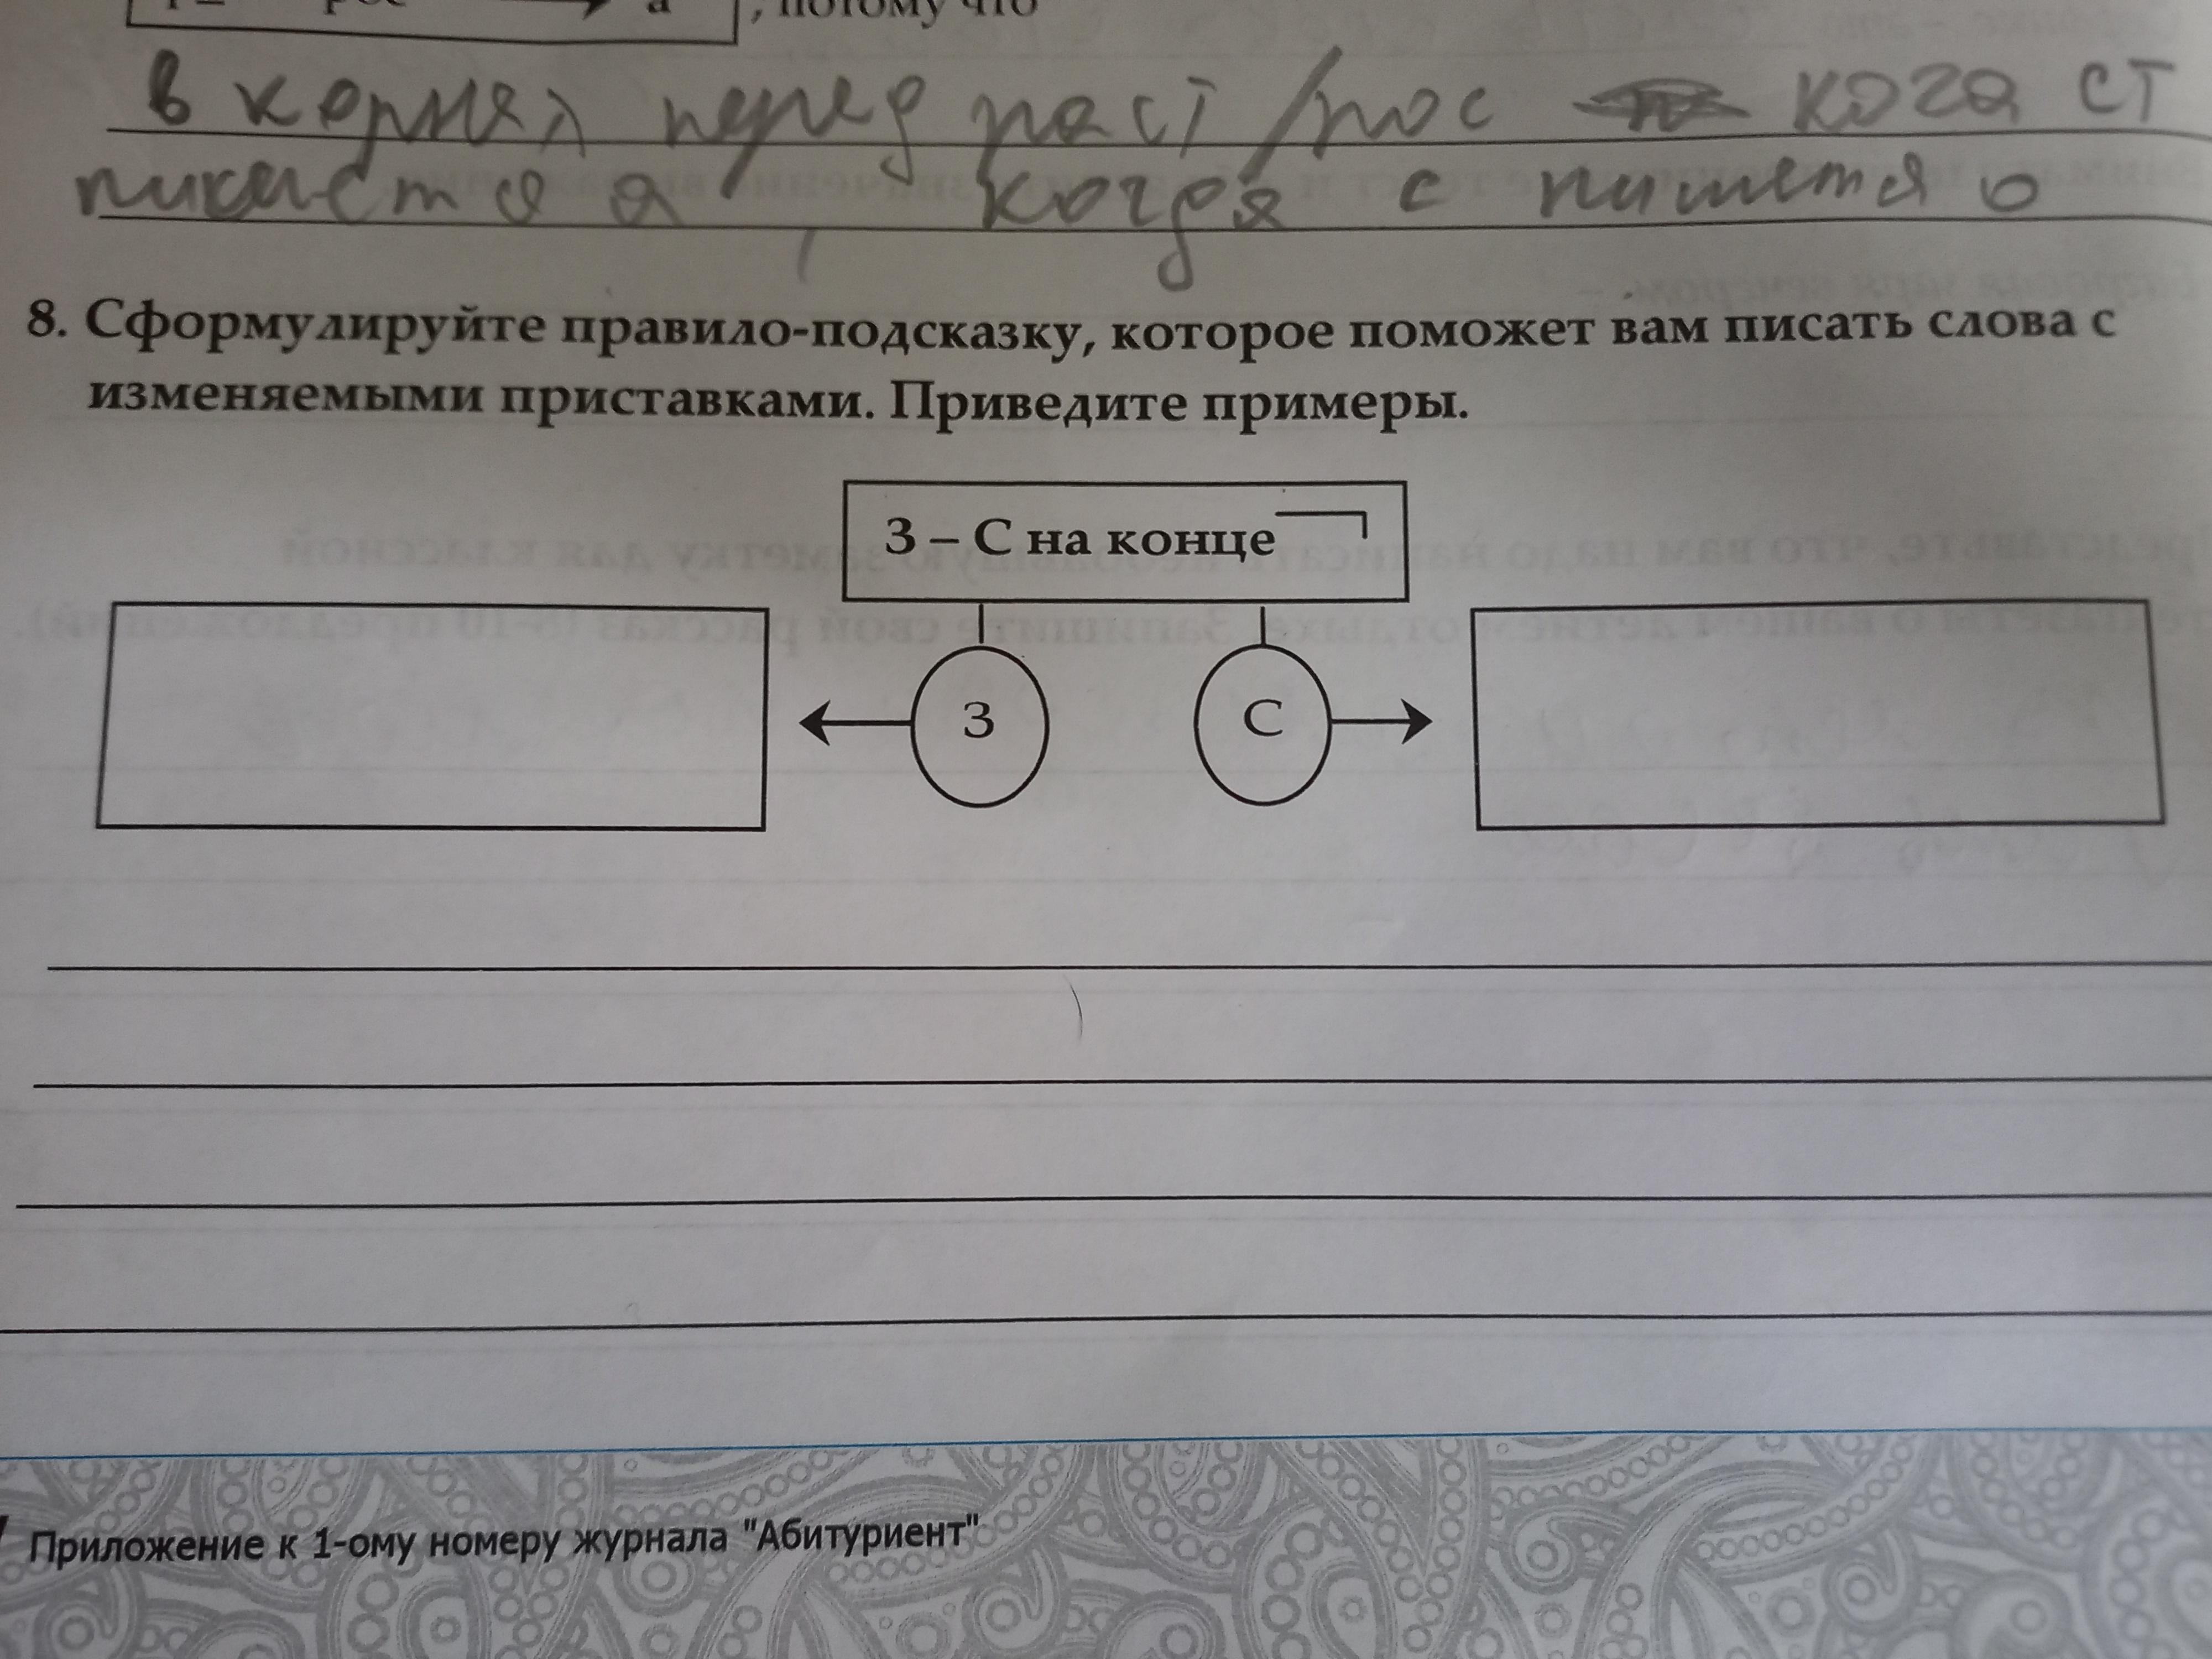 , потому что
в корнях перед раст / рос кога ст
пишется а, когда с пишется о
8. Сформулируйте правило-подсказку, которое поможет вам писать слова с
изменяемыми приставками. Приведите примеры.
З – С на конце
З
С
Приложение к 1-ому номеру журнала "Абитуриент"